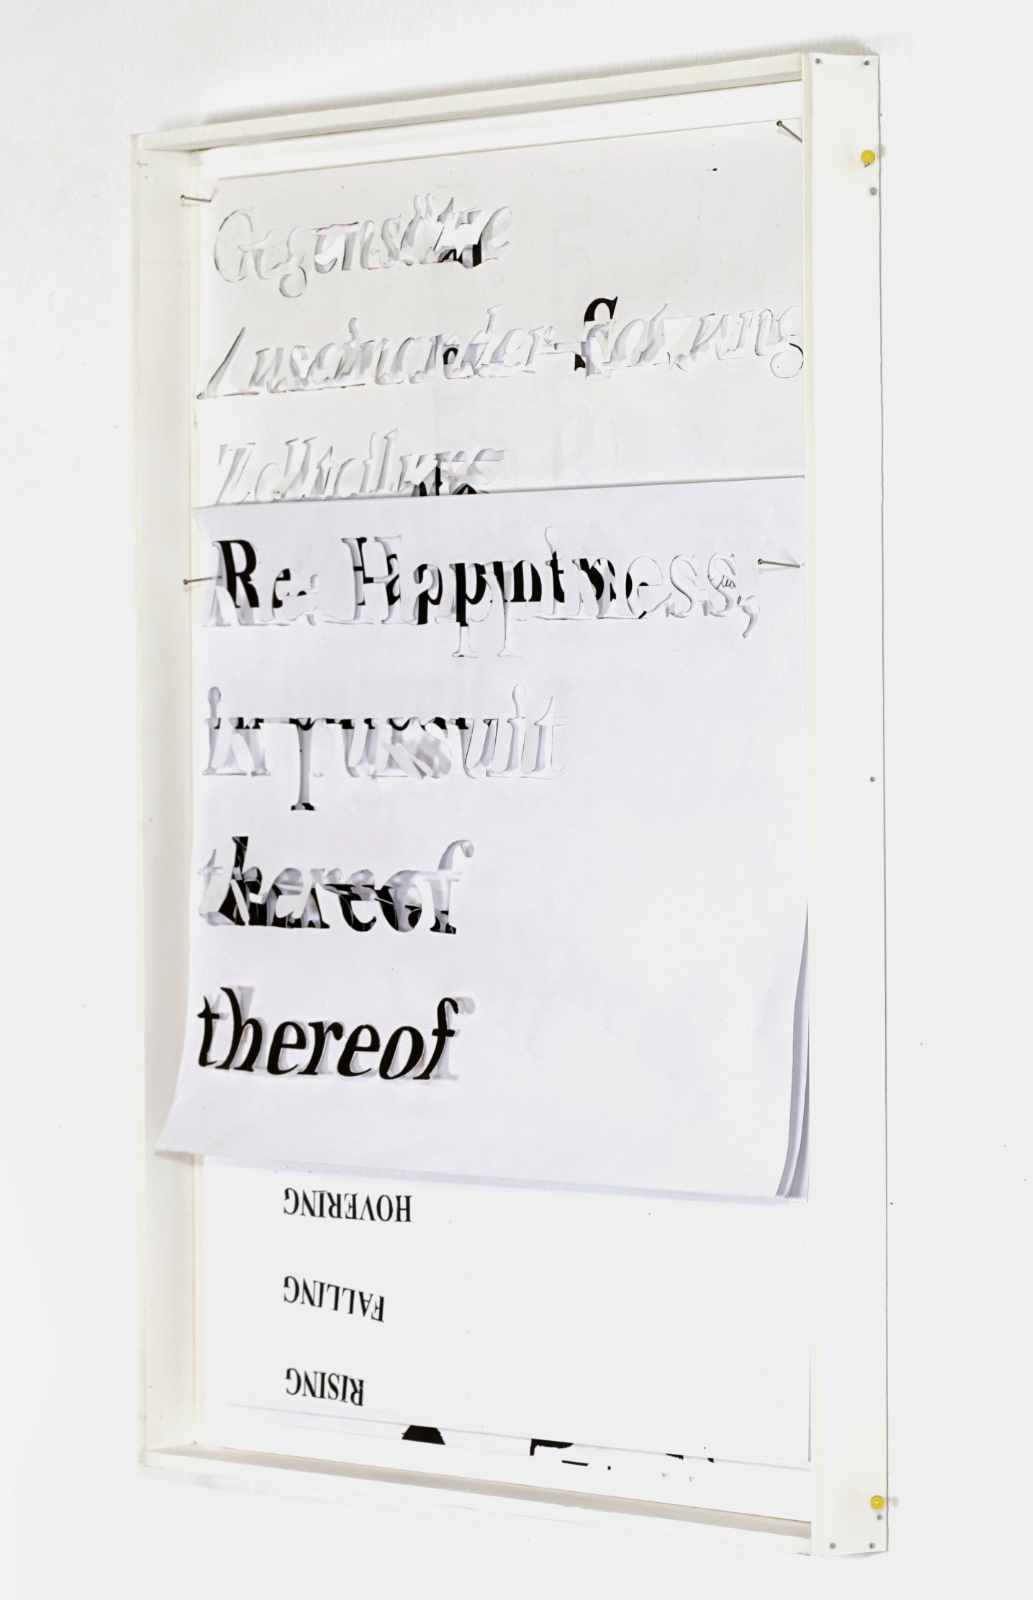 Gegensätze
Auseinander-Satzung
Re: Happiness,
in pursuit
thereof
thereof
HOVERING
FALLING
RISING